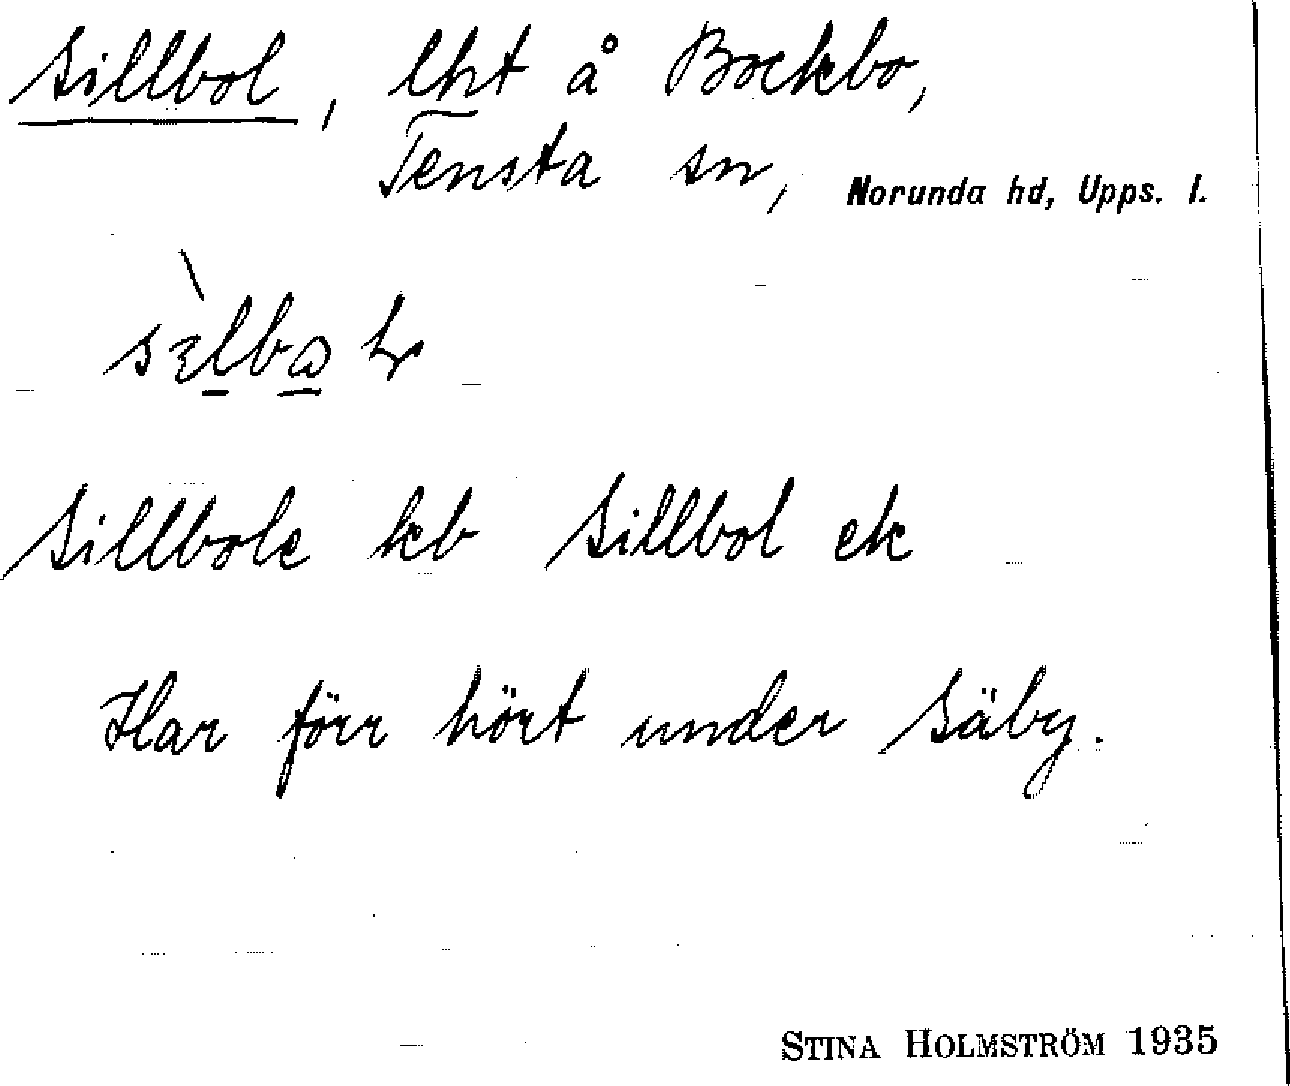 Sillbol, lht å Bockbo,
Tensta sn, Norunda hd, Upps. l.
Sillbole kb Sillbol ek
Har förr hört under Säby.
STINA HOLMSTRÖM 1935